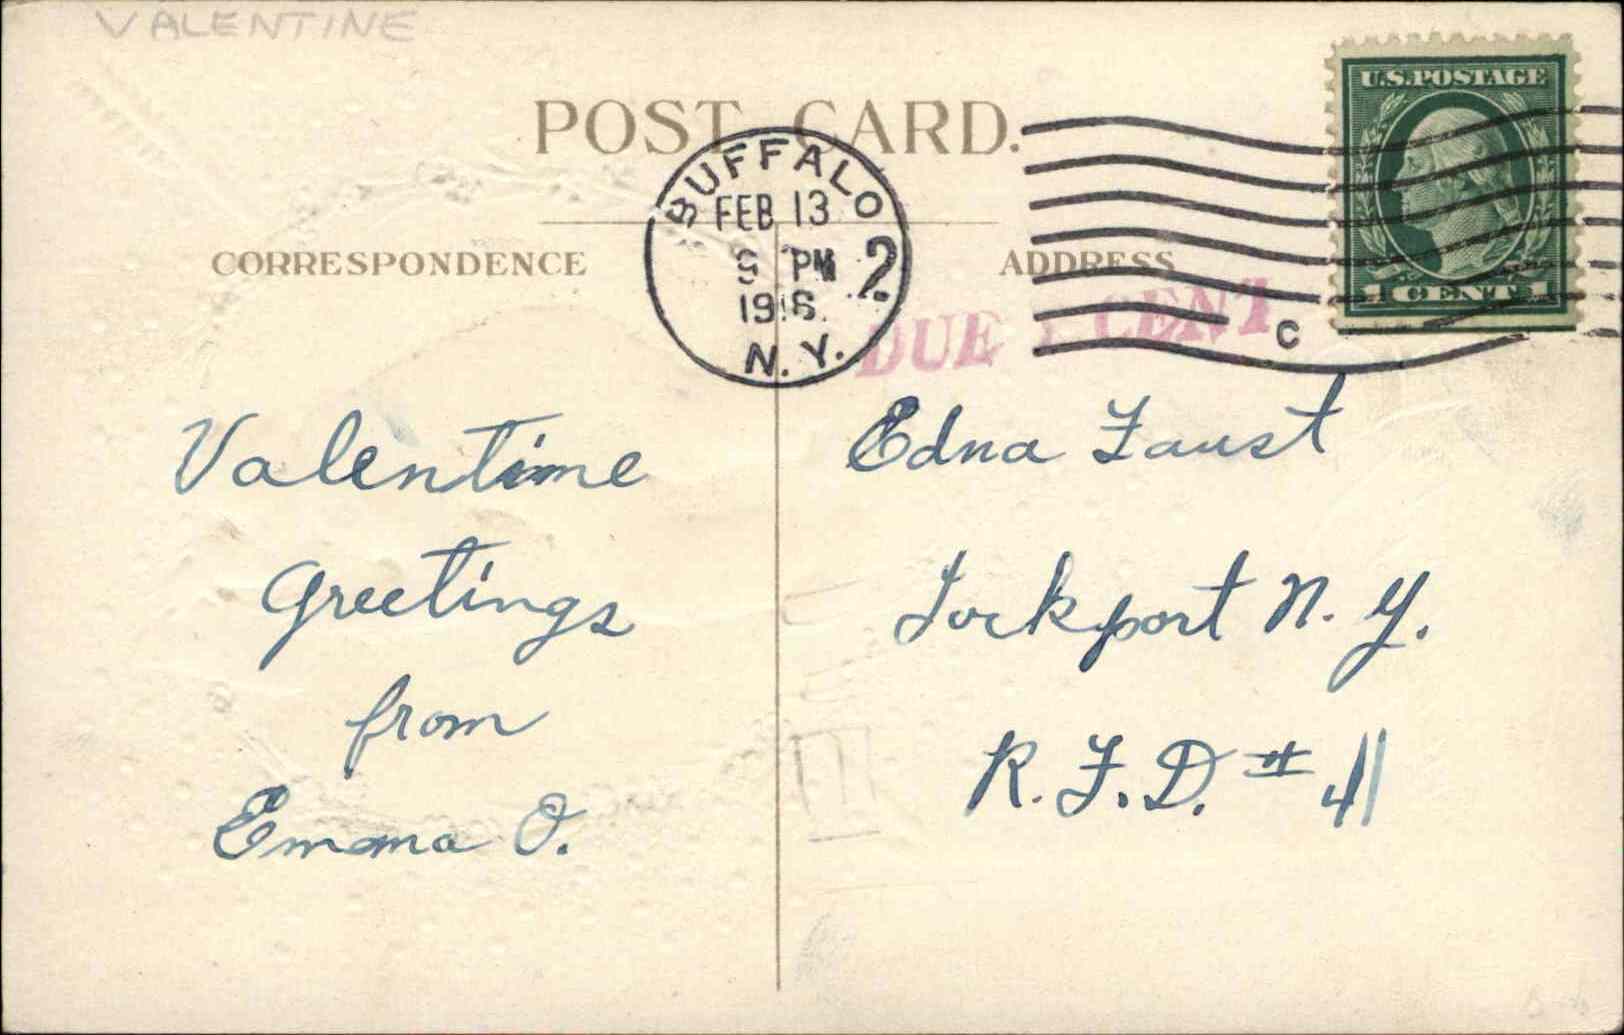 VALENTINE
POST CARD.
U.S. POSTAGE
1 CENT 1
BUFFALO
FEB 13
PM 2
1916
N.Y.
C
CORRESPONDENCE
ADDRESS
DUE 1 CENT
Valentine
Greetings
from
Emma O.
Edna Faust
Lockport N. Y.
R. F. D. #